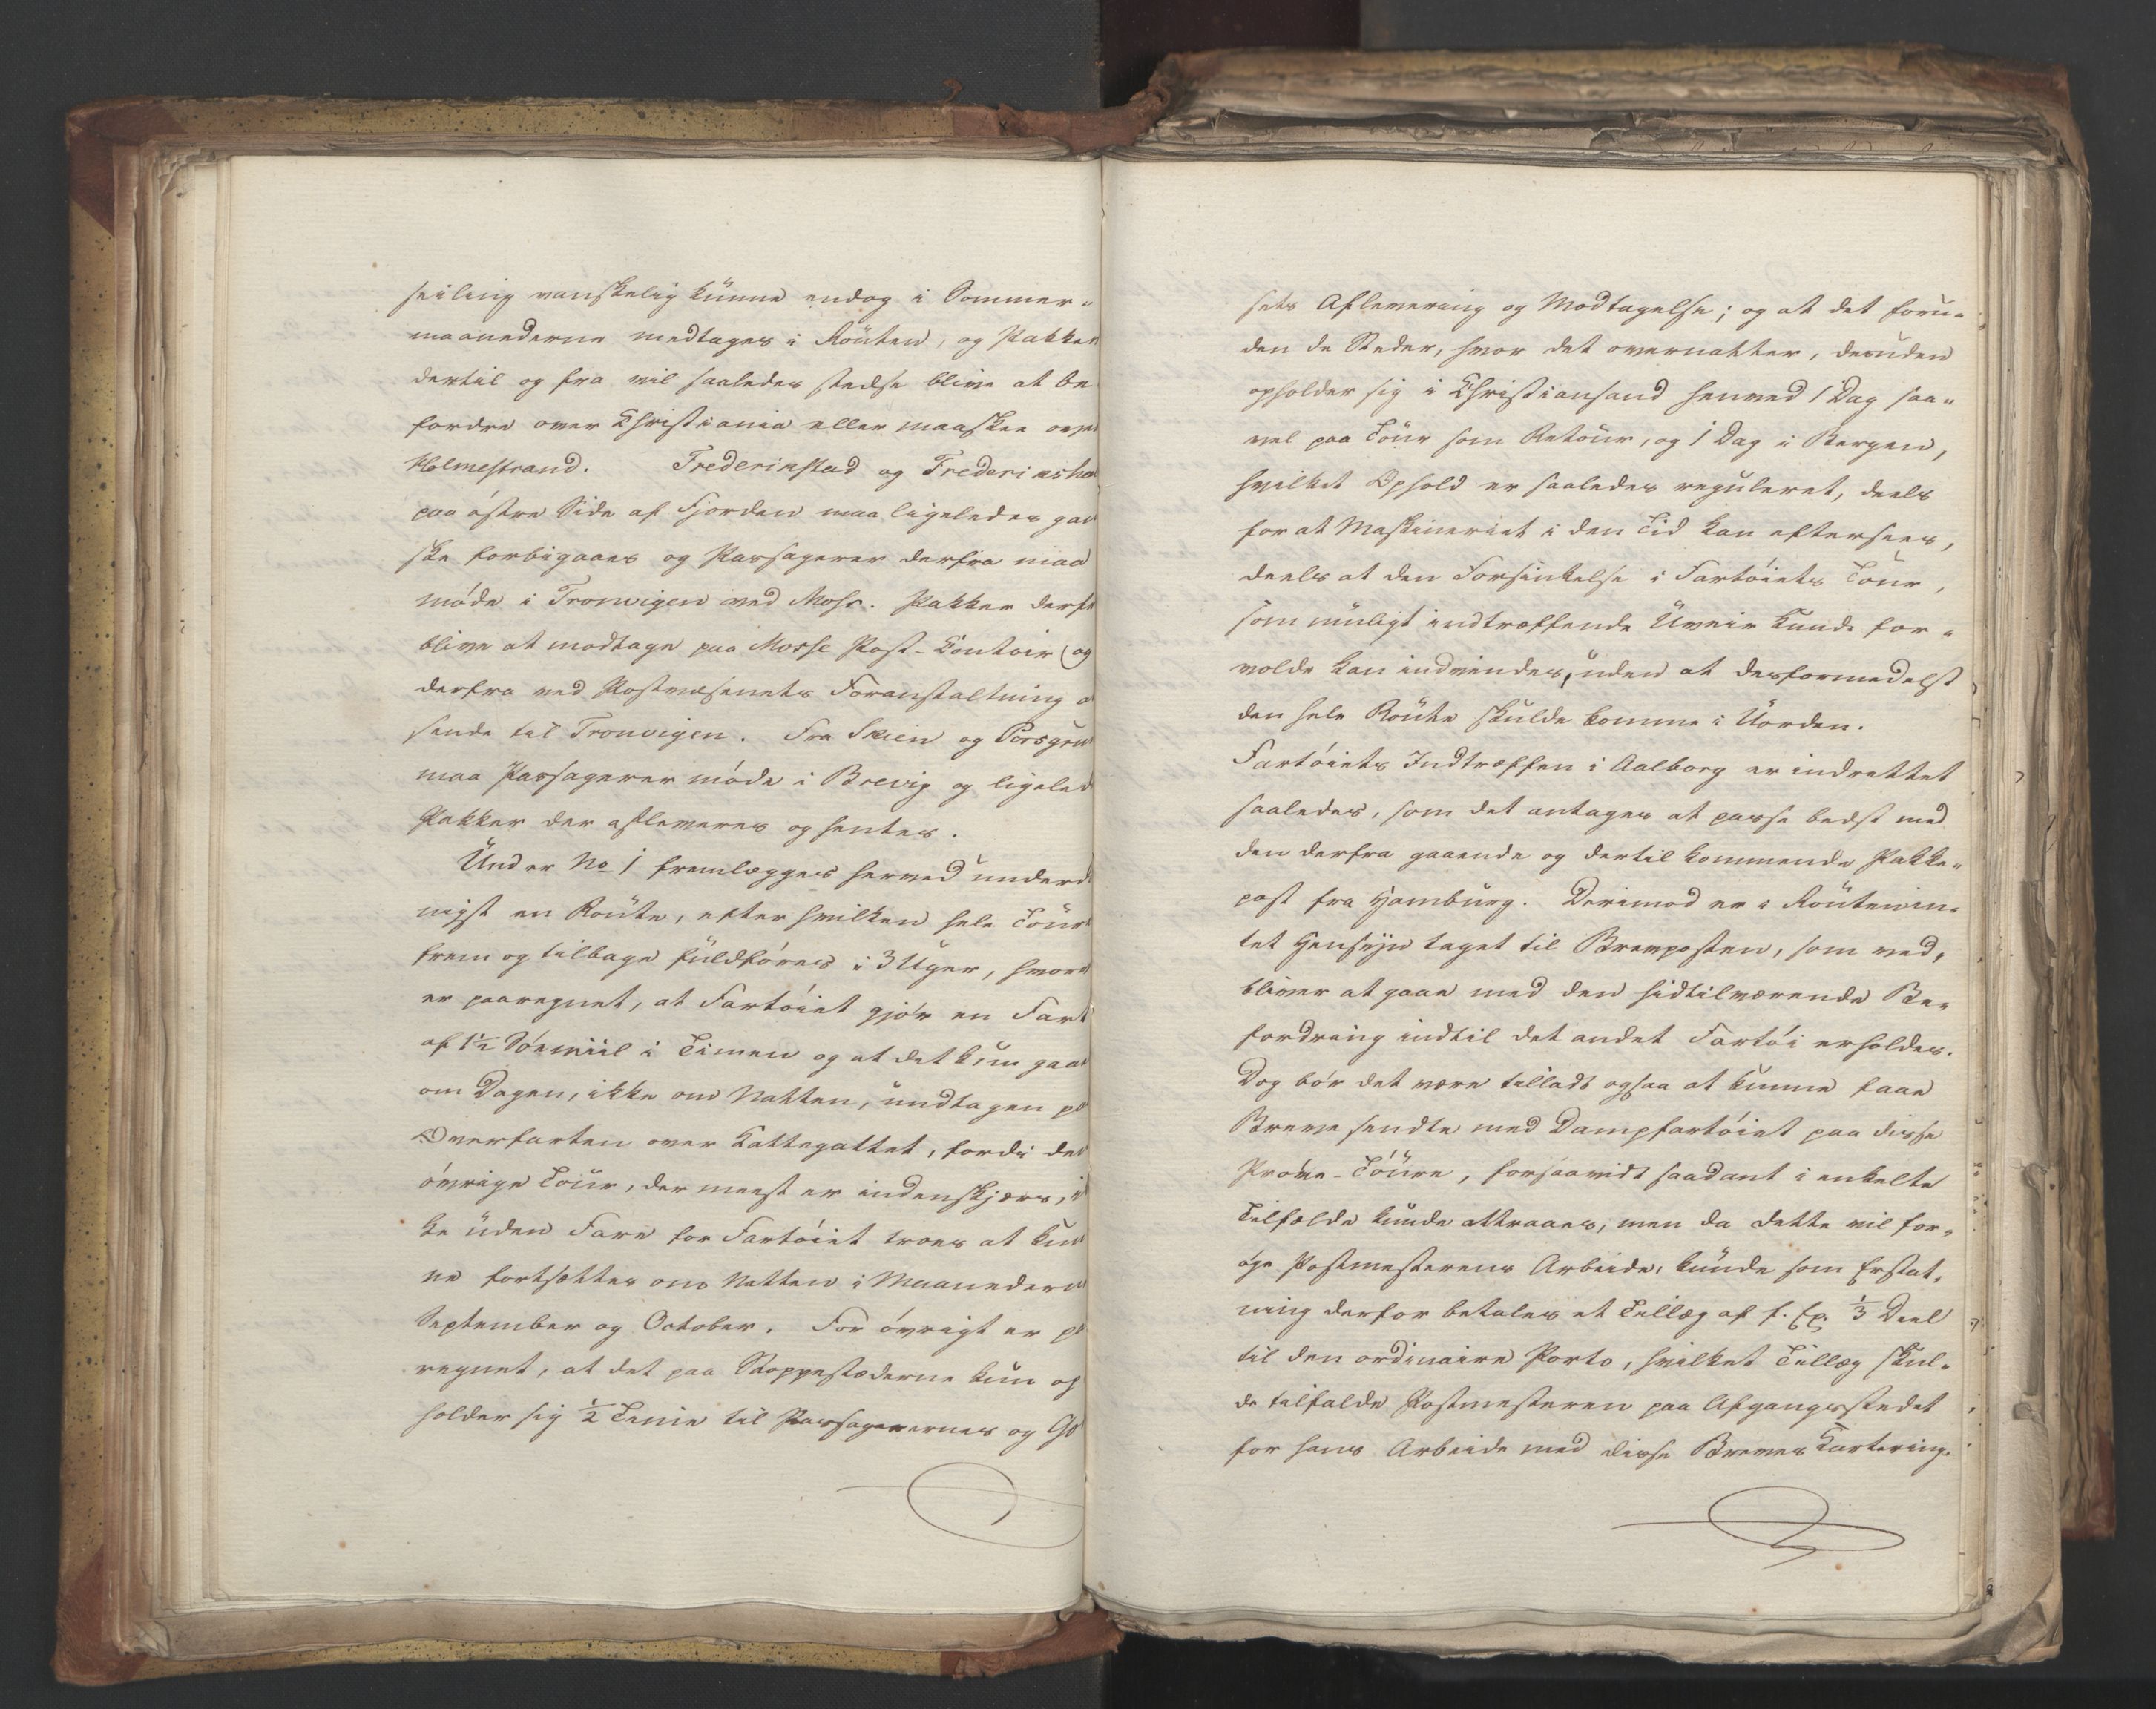 seiling vanskelig kunne endog i Sommer-
maanederne medtages i Routen, og Pakker
dertil og fra vil saaledes stedse blive at be
fordre over Christiania eller maaskee over
Holmestrand. Frederikstad og Frederiksha
paa östre Side af Fjorden maa ligeledes gan
ske forbigaaes og Passagerer derfra maa
möde i Tronvigen ved Moss. Pakker derfr
blive at modtage paa Mosse Post-Contoir (og
derfra ved Postvæsenets Foranstaltning a
sende til Tronvigen. Fra Skien og Porsgru
maa Passagerer möde i Brevig og ligeled
Pakker der afleveres og hentes.
Under No 1 fremlægges herved underd
nigst en Route, efter hvilken hele Tour
frem og tilbage fuldföres i 3 Uger, hvor
er paaregnet, at Fartöiet gjör en Fart
af 1½ Söemiil i Timen og at det kun gaar
om Dagen, ikke om Natten, undtagen p
Overfarten over Kattegattet, fordi de
övrige Tour, der meest er indenskjærs, i
ke uden Fare for Fartöiet troes at kun
ne fortsættes om Natten i Maanedern
September og October. For övrigt er p
regnet, at det paa Stoppestæderne kun op
holder sig ½ Time til Passagerernes og Go
sets Aflevering og Modtagelse; og at det foru-
den de Steder, hvor det overnatter, desuden
opholder sig i Christiansand henved 1 Dag saa-
vel paa Tour som Retour, og 1 Dag i Bergen,
hvilket Ophold er saaledes reguleret, deels
for at Maskineriet i den Tid kan eftersees,
deels at den Forsinkelse i Fartöiets Tour,
som muligt indtræffende Uveir kunde for-
volde kan indvindes, uden at desformedelst
den hele Route skulde komme i Uorden.
Fartöiets Indtræffen i Aalborg er indrettet
saaledes, som det antages at passe bedst med
den derfra gaaende og dertil kommende Pakke-
post fra Hamburg. Derimod er i Routen in-
tet Hensyn taget til Brevposten, som ved-
bliver at gaae med den hidtilværende Be-
fordring indtil det andet Fartöi erholdes.
Dog bör det være tilladt ogsaa at kunne faae
Breve sendte med Dampfartöiet paa disse
Pröve-Toure, forsaavidt saadant i enkelte
Tilfælde kunde attraaes, men da dette vil for-
öge Postmesterens Arbeide, kunde som Erstat-
ning derfor betales et Tillæg af f. Ex. ⅓ Deel
til den ordinaire Porto, hvilket Tillæg skul-
de tilfalde Postmesteren paa Afgangsstedet
for hans Arbeide med disse Breves Kartering.